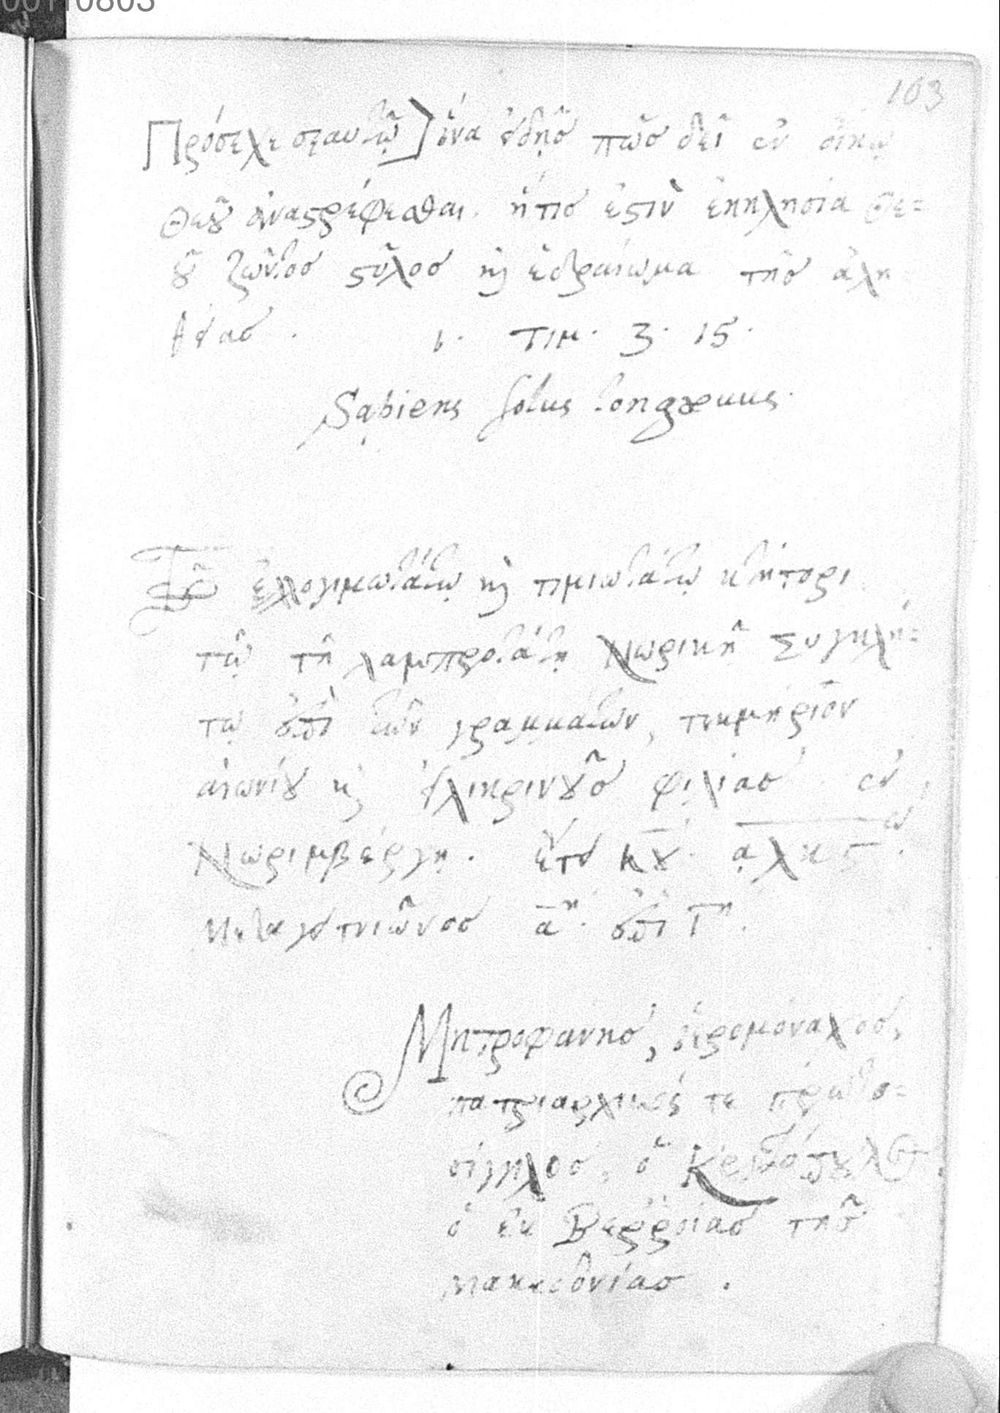 00110803
163
Πρόσεχε σεαυτῷ] ἵνα εἰδῇς πῶς δεῖ ἐν οἴκῳ
Θεοῦ ἀναστρέφεσθαι. ἥτις ἐστὶν ἐκκλησία Θε-
οῦ ζῶντος στῦλος καὶ ἑδραίωμα τῆς ἀλη
θείας. 1. Τιμ. 3. 15.
Sapiens solus longæuus.
Τῷ ἐλλογιμωτάτῳ καὶ τιμιωτάτῳ κτήτορι
τῷ τῇ λαμπροτάτῃ Νωρικῇ Συγκλή-
τῳ ἐπὶ τῶν γραμμάτων, τεκμήριον
αἰωνίου καὶ εἰλικρινοῦς φιλίας ἐν
Νωριμβέργῃ. ἔτει
α^η. ἐπὶ Γ^η.
Μητροφάνης, ἱερομόναχος,
πατριαρχικός τε πρωτο-
σύγκελος, ὁ Κριτόπουλος
ὁ ἐκ Βερροίας τῆς
Μακεδονίας.